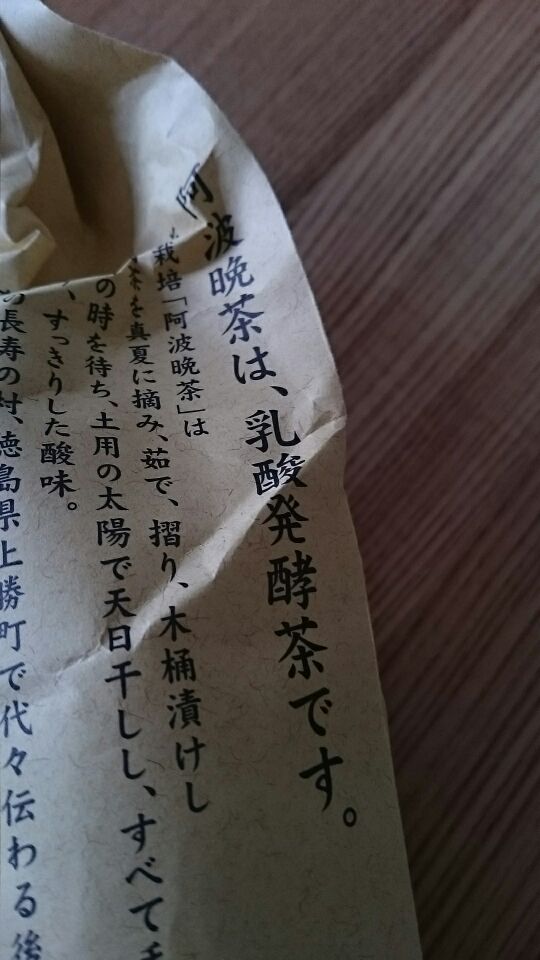 阿波晩茶は、乳酸発酵茶です。
栽培「阿波晩茶」は
を真夏に摘み、茹で、摺り、木桶漬けし
の時を待ち、土用の太陽で天日干しし、すべて手
、すっきりした酸味。
の長寿の村、徳島県上勝町で代々伝わる後